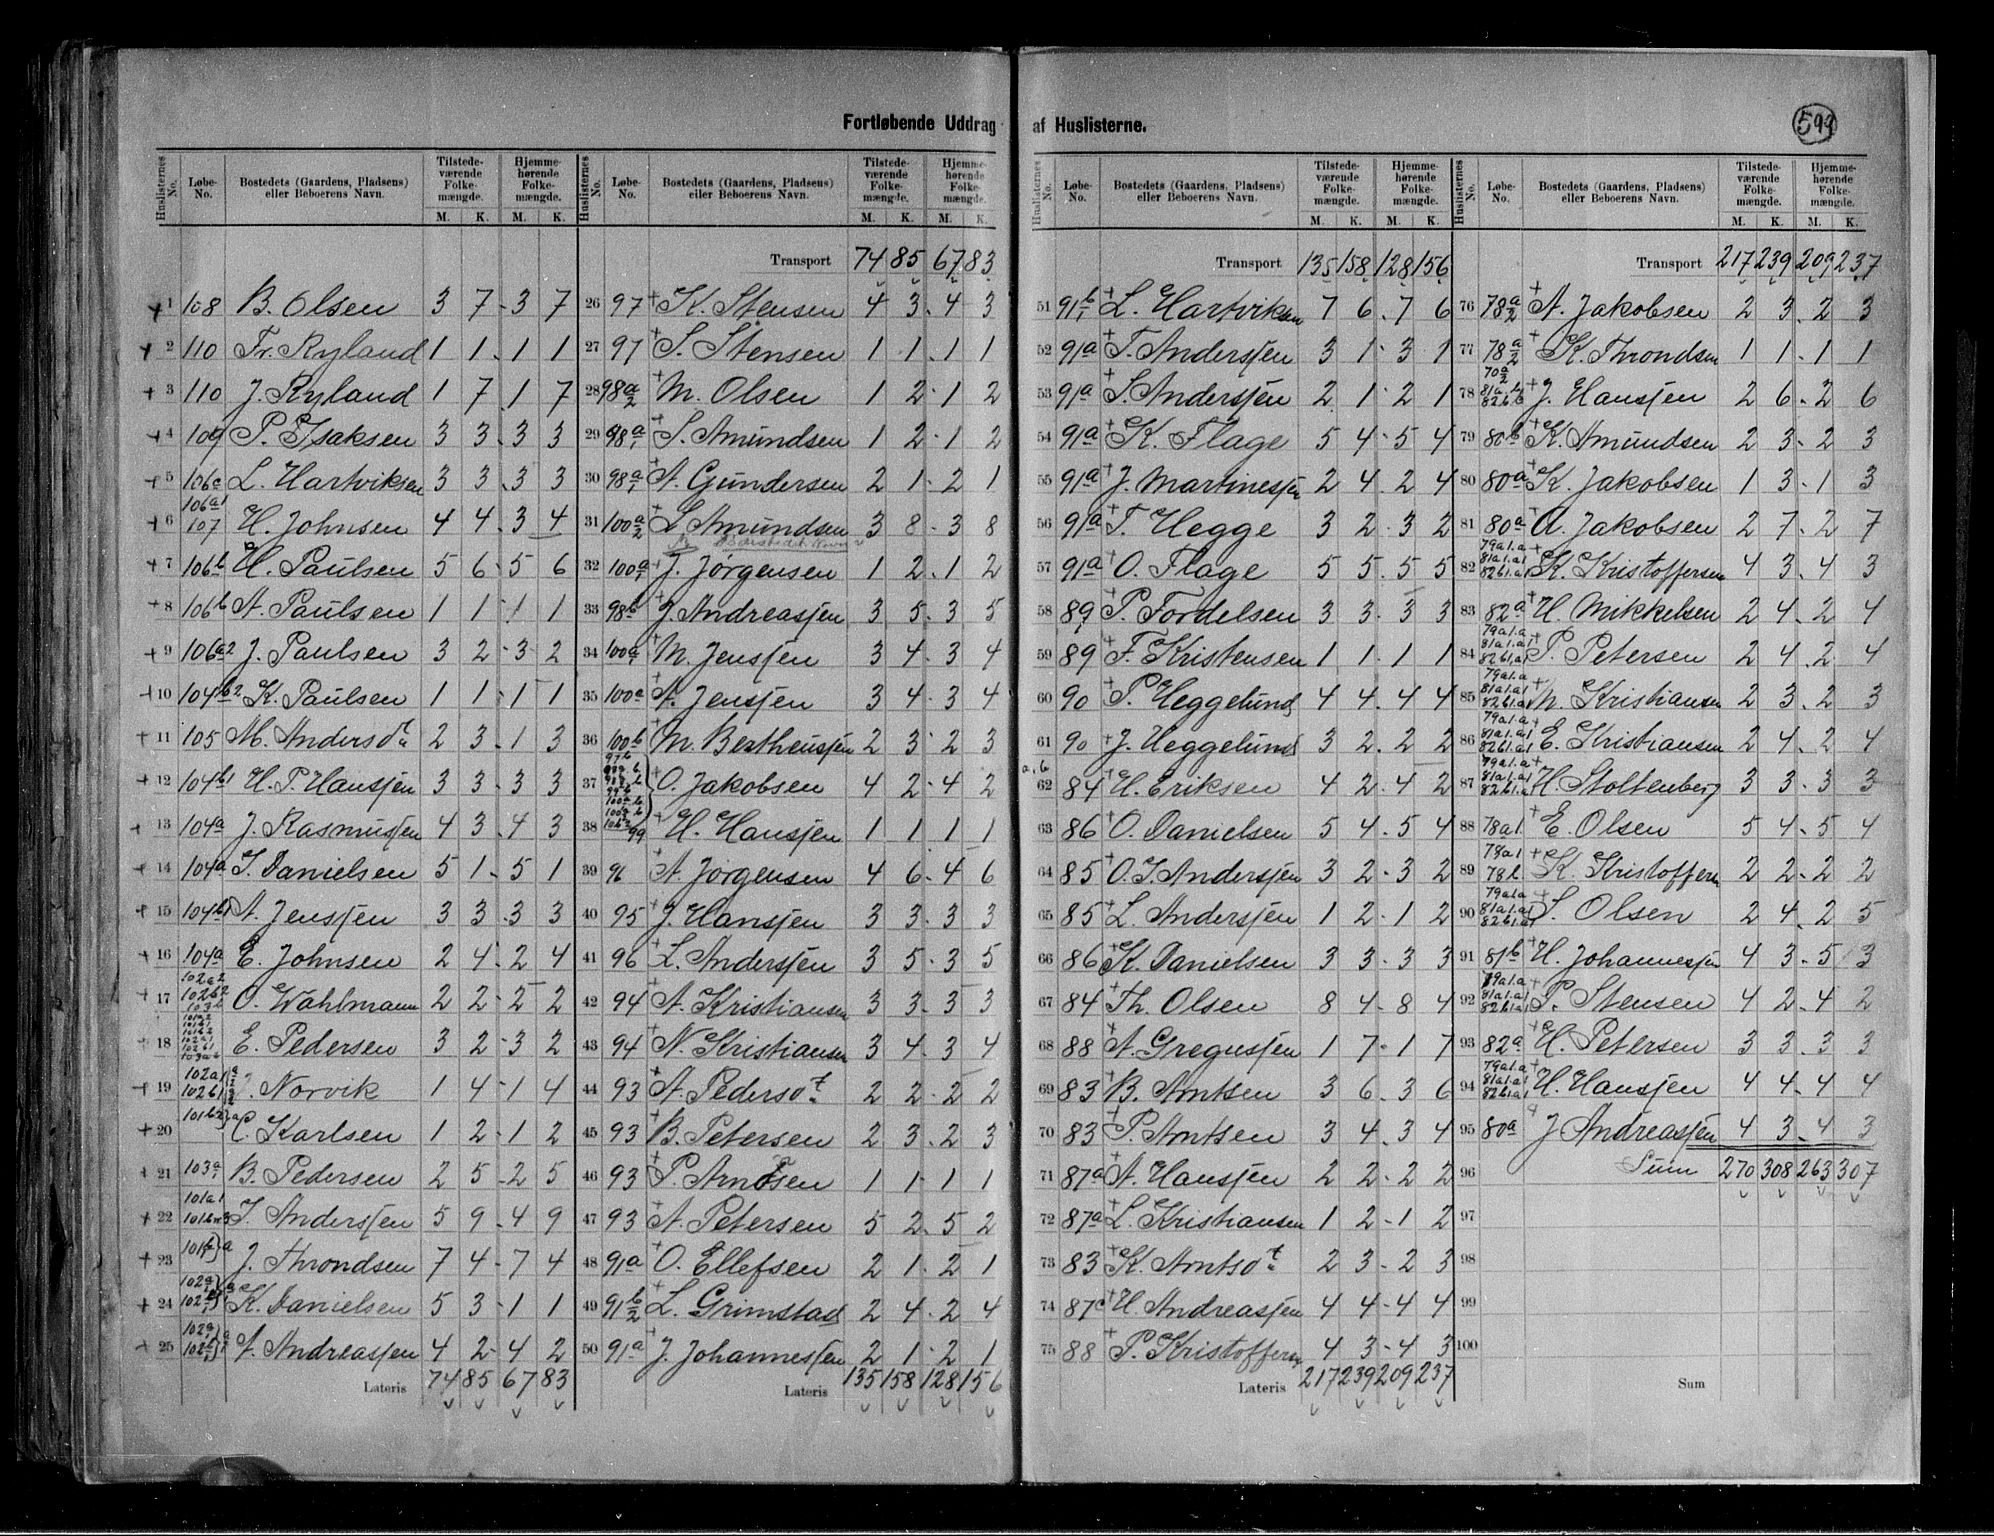 Fortløbende Uddrag af Huslisterne.
599
Huslisternes No. Løbe-No. Bostedets (Gaardens, Pladsens) eller Beboerens Navn. Tilstedeværende Folkemængde. M. K. Hjemmehørende Folkemængde. M. K.
1 108 B. Olsen 3 7 - 3 7
2 110 Fr. Ryland 1 1 - 1 1
3 110 J. Ryland 1 7 - 1 7
4 109 P. Isaksen 3 3 - 3 3
5 106a L. Hartviksen 3 3 - 3 3
6 106a1 107 H. Johnsen 4 4 - 3 4
7 106b H. Paulsen 5 6 - 5 6
8 106b A. Paulsen 1 1 - 1 1
9 106a2 J. Paulsen 3 2 - 3 2
10 104b2 K. Paulsen 1 1 - 1 1
11 105 M. Andersdt 2 3 - 1 3
12 104b1 H. P. Hansjen 3 3 - 3 3
13 104a J. Rasmusjen 4 3 - 4 3
14 104a I. Danielsen 5 1 - 5 1
15 104b1 A. Jensjen 3 3 - 3 3
16 104a E. Johnsen 2 4 - 2 4
17 102a2 102b2 103b O. Wahlmann 2 2 - 2 2
18 E. Pedersen 3 2 - 3 2
19 102a1 102b1 Norvik 1 4 - 1 4
20 101b2 Karlsen 1 2 - 1 2
21 103a B. Pedersen 2 5 - 2 5
22 101a1 I. Andersjen 5 9 - 4 9
23 J. Throndsen 7 4 - 7 4
24 K. Danielsen 5 3 - 1 1
25 A. Andreasjen 4 2 - 4 2
Lateris 74 85 67 83
Huslisternes No. Løbe-No. Bostedets (Gaardens, Pladsens) eller Beboerens Navn. Tilstedeværende Folkemængde. M. K. Hjemmehørende Folkemængde. M. K.
Transport 74 85 67 83
26 97 K. Stensen 4 3 - 4 3
27 97 S. Stensen 1 1 - 1 1
28 98a/2 M. Olsen 1 2 - 1 2
29 98a/1 S. Amundsen 1 2 - 1 2
30 98a/1 A. Gundersen 2 1 - 2 1
31 100a/2 L. Amundsen 3 8 - 3 8
32 100a/1 J. Jørgensen 1 2 - 1 2
33 98b J. Andreasjen 3 5 - 3 5
34 100a/1 M. Jensjen 3 4 - 3 4
35 100a A. Jensjen 3 4 - 3 4
36 100b M. Bertheusjen 2 3 - 2 3
37 O. Jakobsen 4 2 - 4 2
38 99 H. Hansjen 1 1 1 1
39 96 A. Jørgensen 4 6 - 4 6
40 95 J. Hansjen 3 3 - 3 3
41 96 L. Andersjen 3 5 - 3 5
42 94 A. Kristiansen 3 3 - 3 3
43 94 N. Kristiansen 3 4 - 3 4
44 93 A. Pedersdt 2 2 - 2 2
45 93 B. Petersen 2 3 - 2 3
46 93 P. Arntsen 1 1 - 1 1
47 93 A. Petersen 5 2 - 5 2
48 91a O. Ellefsen 2 1 - 2 1
49 91b/2 L. Grimstad 2 4 - 2 4
50 91a J. Johannesjen 2 1 - 2 1
Lateris 135 158 128 156
Huslisternes No. Løbe-No. Bostedets (Gaardens, Pladsens) eller Beboerens Navn. Tilstedeværende Folkemængde. M. K. Hjemmehørende Folkemængde. M. K.
Transport 135 158 128 156
51 91b/1 L. Hartviksen 7 6 - 7 6
52 91a T. Andersjen 3 1 - 3 1
53 91a S. Andersjen 2 1 - 2 1
54 91a K. Flage 5 4 - 5 4
55 91a J. Martinesjen 2 4 - 2 4
56 91a T. Hegge 3 2 - 3 2
57 91a O. Flage 5 5 - 5 5
58 89 P. Fordelsen 3 3 - 3 3
59 89 F. Kristensen 1 1 - 1 1
60 90 P. Heggelund 4 4 - 4 4
61 90 J. Heggelund 3 2 - 2 2
62 84 H. Eriksen 4 2 - 4 2
63 86 O. Danielsen 5 4 - 5 4
64 85 O. I. Andersjen 3 2 - 3 2
65 85 L. Andersjen 1 2 - 1 2
66 86 K. Danielsen 3 3 - 3 3
67 84 Th. Olsen 8 4 - 8 4
68 88 A. Gregusjen 1 7 - 1 7
69 83 B. Arntsen 3 6 - 3 6
70 83 P. Arntsen 3 4 - 3 4
71 87a A. Hansjen 2 2 - 2 2
72 87a L. Kristiansen 1 2 - 1 2
73 83 K. Arntsdt 2 3 - 2 3
74 87c H. Andreasjen 4 4 - 4 4
75 88 P. Kristoffersen 4 3 - 4 3
Lateris 217 239 209 237
Huslisternes No. Løbe-No. Bostedets (Gaardens, Pladsens) eller Beboerens Navn. Tilstedeværende Folkemængde. M. K. Hjemmehørende Folkemængde. M. K.
Transport 217 239 209 237
76 78a/2 A. Jakobsen 2 3 - 2 3
77 78a/2 K. Throndsen 1 1 - 1 1
78 J. Hansjen 2 6 - 2 6
79 80b K. Amundsen 2 3 - 2 3
80 80a K. Jakobsen 1 3 - 1 3
81 80a A. Jakobsen 2 7 - 2 7
82 79a1.a 81a1.a1 82b1.a1 K. Kristoffersen 4 3 - 4 3
83 82a H. Mikkelsen 2 4 - 2 4
84 79a1.a 81a1.a1 82b1.a1 P. Petersen 2 4 - 2 4
85 79a1.a 81a1.a1 82b1.a1 M. Kristiansen 2 3 - 2 3
86 79a1.a 81a1.a1 82b1.a1 E. Kristiansen 2 4 - 2 4
87 79a1.a 81a1.a1 82b1.a1 H. Stoltenberg 3 3 - 3 3
88 78a1. E. Olsen 5 4 - 5 4
89 78a1 78b K. Kristoffersen 2 2 - 2 2
90 79a1a 81a1.a1 82b1.a1 S. Olsen 2 4 - 2 5
91 81b H. Johannesjen 4 3 - 5 3
92 79a1.a 81a1.a1 82b1.a1 P. Stensen 4 2 - 4 2
93 82a H. Petersen 3 3 - 3 3
94 79a1.a 81a1.a1 82b1.a1 H. Hansjen 4 4 - 4 4
95 80a J. Andreasjen 4 3 - 4 3
96 Sum 270 308 263 307
97
98
99
100
Sum